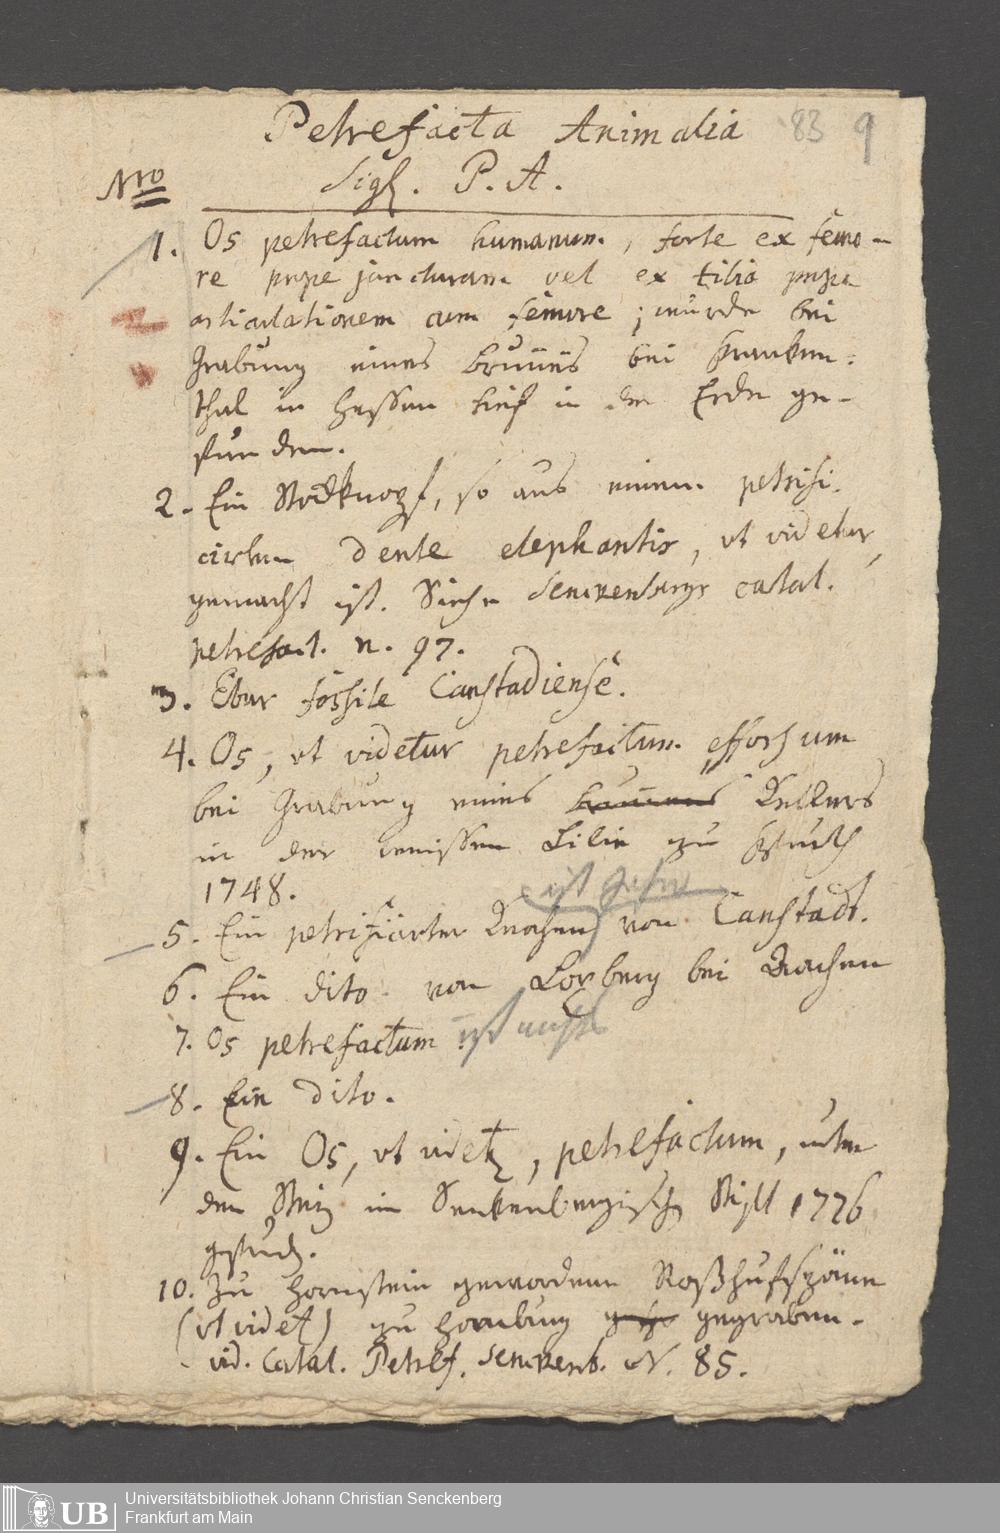 Petrefacta Animalia 83 9
Sign. P. A.
Nro
1. Os petrefactum humanum, forte ex femo-
re prope juncturam vel ex tibia prope
articulationem cum femore; wurde bei
Grabung eines Brunens bei Franken-
thal in Hessen tief in der Erde ge-
funden.
2. Ein Stockknopf, so aus einem petrifi-
cirten dente elephantis, ut videtur,
gemacht ist. Siehe Senckenbergs catal.
petrefact. n. 97.
3. Ebur fossile Canstadiense.
4. Os, ut videtur petrefactum, effossum
bei Grabung eines Kellers
in der weissen Lilie zu
1748.
ist
5. Ein petrificirter Knochen von Canstadt.
6. Ein dito von bei Aachen
7. Os petrefactum. ist nichts
8. Ein dito.
9. Ein Os, ut videt, petrefactum, unter
den im Senkenbergischen Stifft 1776
gefund.
10. Zu Hornstein gewordene Roßhufspäne
(ut videt) zu Homburg gegraben.
vid. Catal. Petref. Senckenb. N. 85.
Universitätsbibliothek Johann Christian Senckenberg
Frankfurt am Main
UB